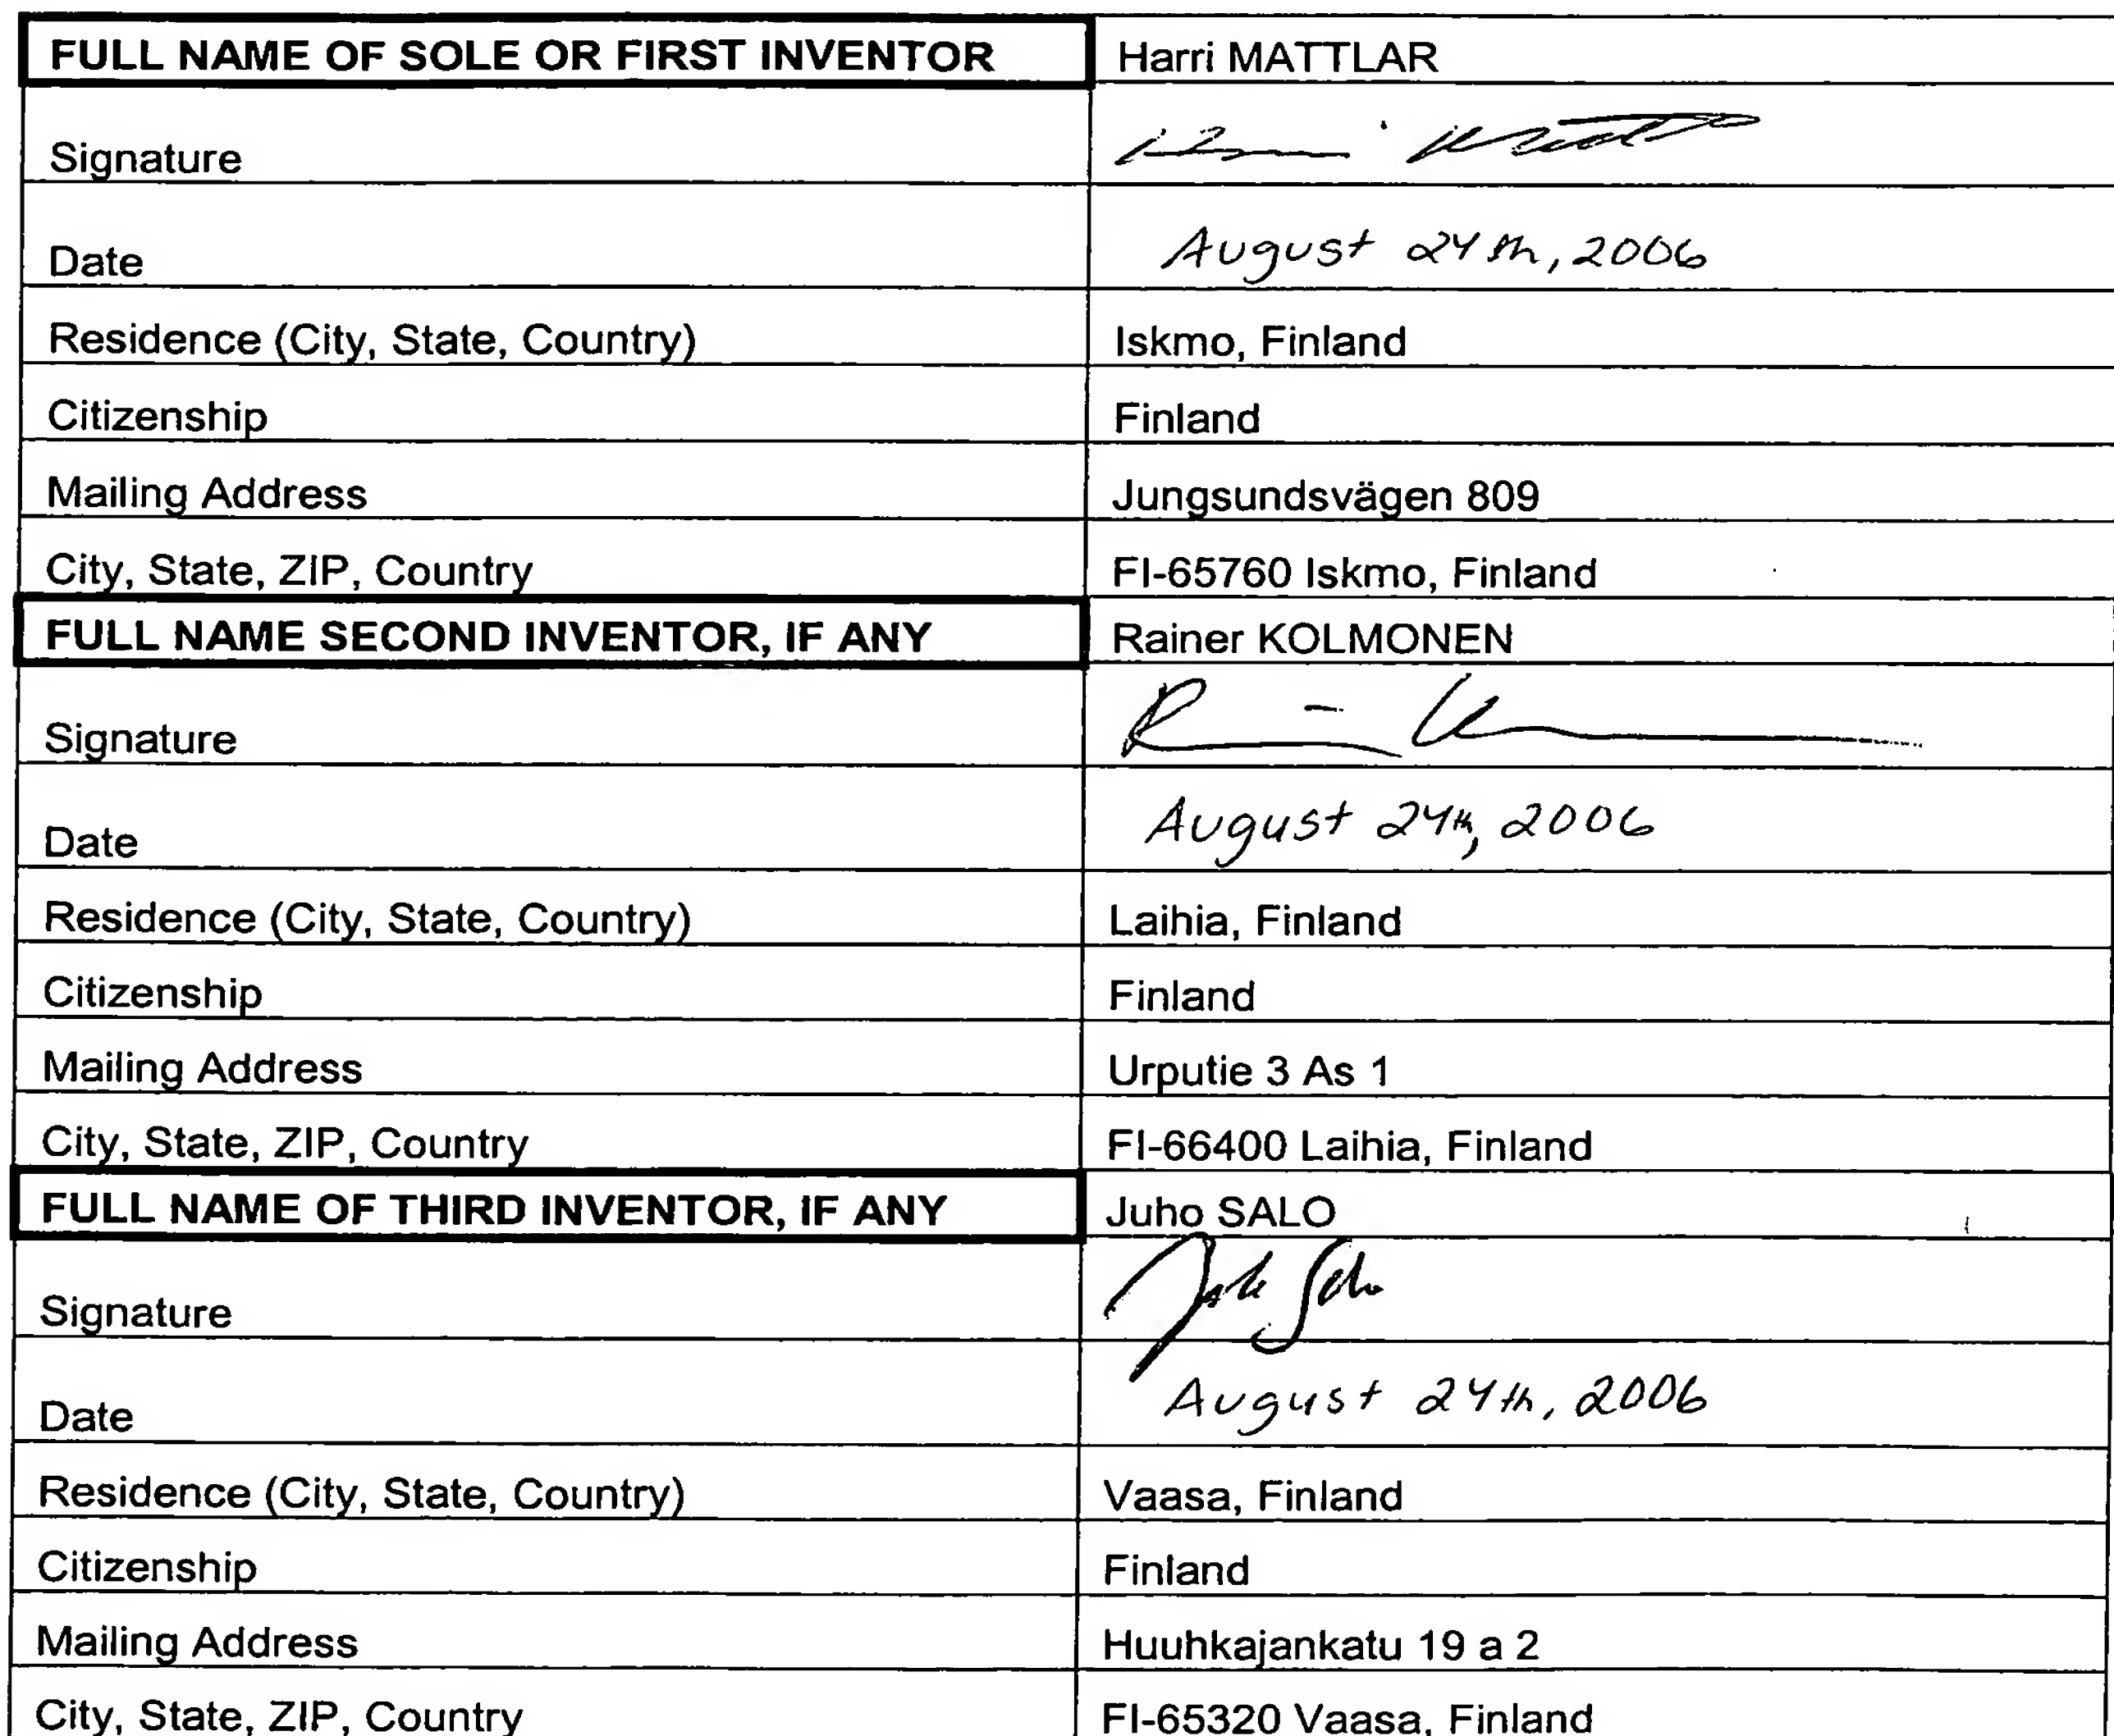 FULL NAME OF SOLE OR FIRST INVENTOR Harri MATTLAR
Signature
Date August 24th, 2006
Residence (City, State, Country) Iskmo, Finland
Citizenship Finland
Mailing Address Jungsundsvägen 809
City, State, ZIP, Country FI-65760 Iskmo, Finland
FULL NAME SECOND INVENTOR, IF ANY Rainer KOLMONEN
Signature
Date August 24th, 2006
Residence (City, State, Country) Laihia, Finland
Citizenship Finland
Mailing Address Urputie 3 As 1
City, State, ZIP, Country FI-66400 Laihia, Finland
FULL NAME OF THIRD INVENTOR, IF ANY Juho SALO
Signature Juho Salo
Date August 24th, 2006
Residence (City, State, Country) Vaasa, Finland
Citizenship Finland
Mailing Address Huuhkajankatu 19 a 2
City, State, ZIP, Country FI-65320 Vaasa, Finland